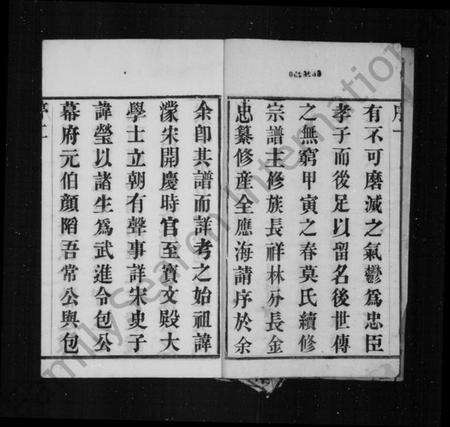 有不可磨滅之氣鬱爲忠臣
孝子而後足以留名後世傳
之無窮甲寅之春莫氏續修
宗譜主修族長祥林分長金
忠纂修産全應海請序於余
余卽其譜而詳考之始祖諱
濛宋開慶時官至寳文殿大
學士立朝有聲事詳宋史子
諱瑩以諸生爲武進令包公
幕府元伯顏陷吾常公與包
序二
FamilySearch International